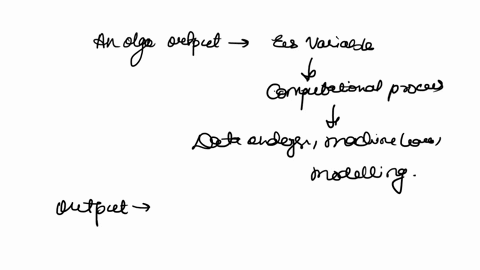 An algo output → Res Variable
↓
Computational process
↓
Data analysis, machine learn,
modelling.
output →